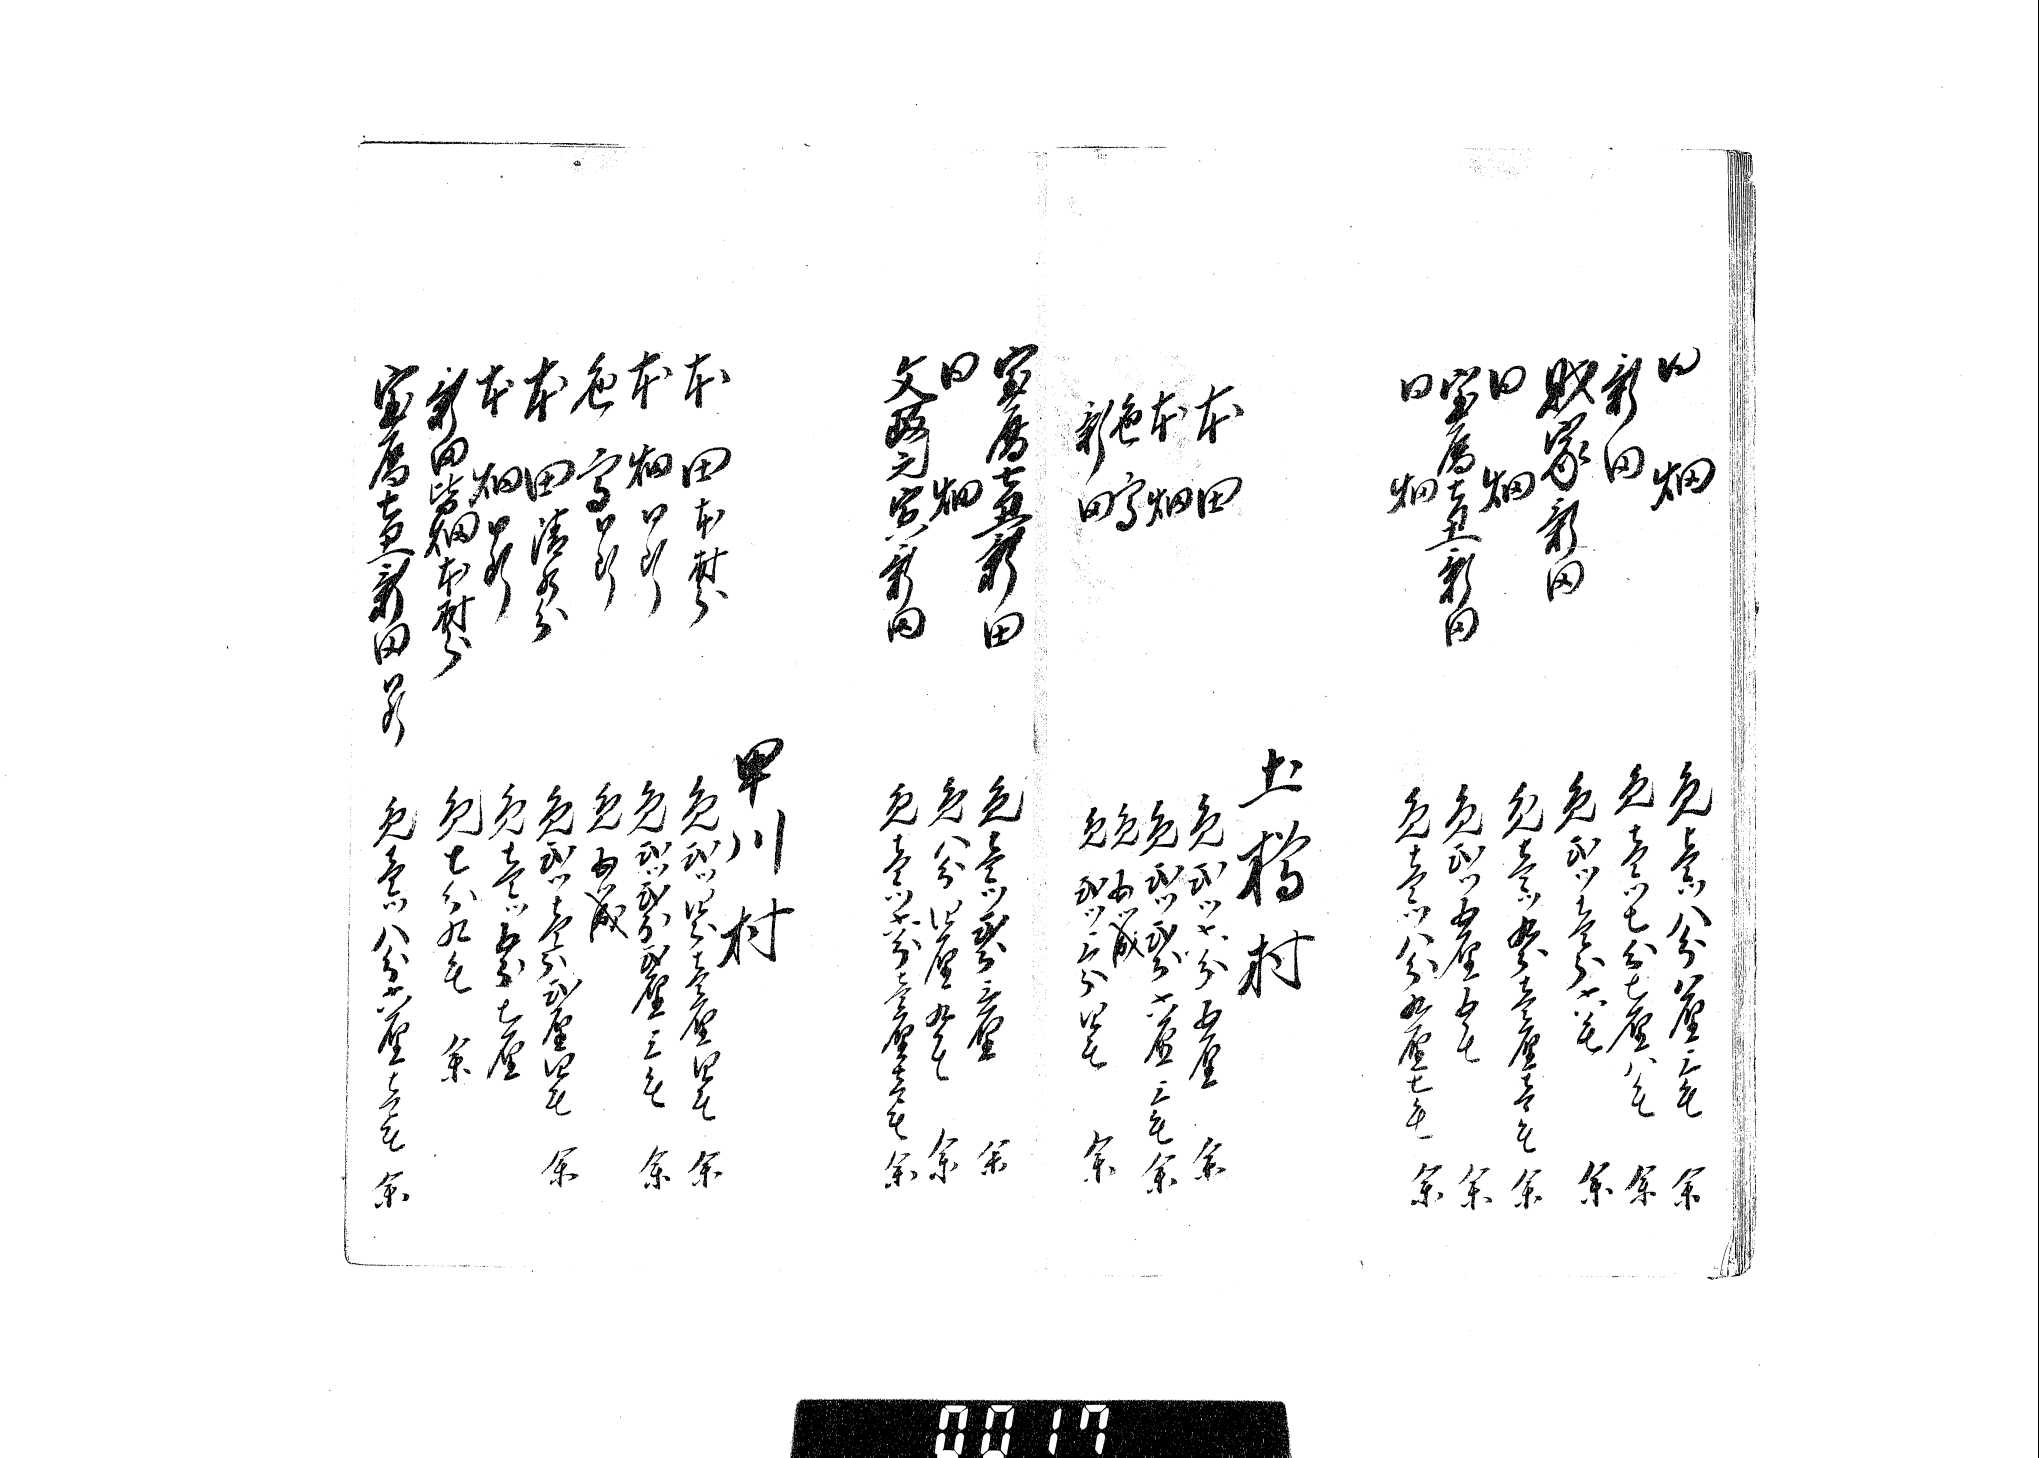 同　畑　免壱ツ八分八厘三毛　余
新田　免壱ツ七分七厘八毛　余
新田　免弐ツ壱分六毛　余
同　畑　免壱ツ九分壱厘壱毛　余
宝暦七丑新田　免弐ツ五厘五毛　余
同　畑　免壱ツ八分九厘七毛　余
土橋村
本田　免弐ツ六分五厘　余
本畑　免弐ツ弐分六厘三毛　余
色高　免五ツ成
新田　免弐ツ三分四毛　余
宝暦七丑新田　免壱ツ弐分三厘　余
同　畑　免八分四厘九毛　余
文政元寅新田　免壱ツ六分壱厘壱毛　余
甲川村
本田本村分　免弐ツ四分壱厘四毛　余
本畑同断　免弐ツ弐分弐厘三毛　余
色高同断　免五ツ成
本田清水分　免弐ツ壱分弐厘四毛　余
本畑同断　免壱ツ五分七厘
新田皆畑本村分　免七分九毛　余
宝暦七丑新田同断　免壱ツ八分六厘壱毛　余
0017